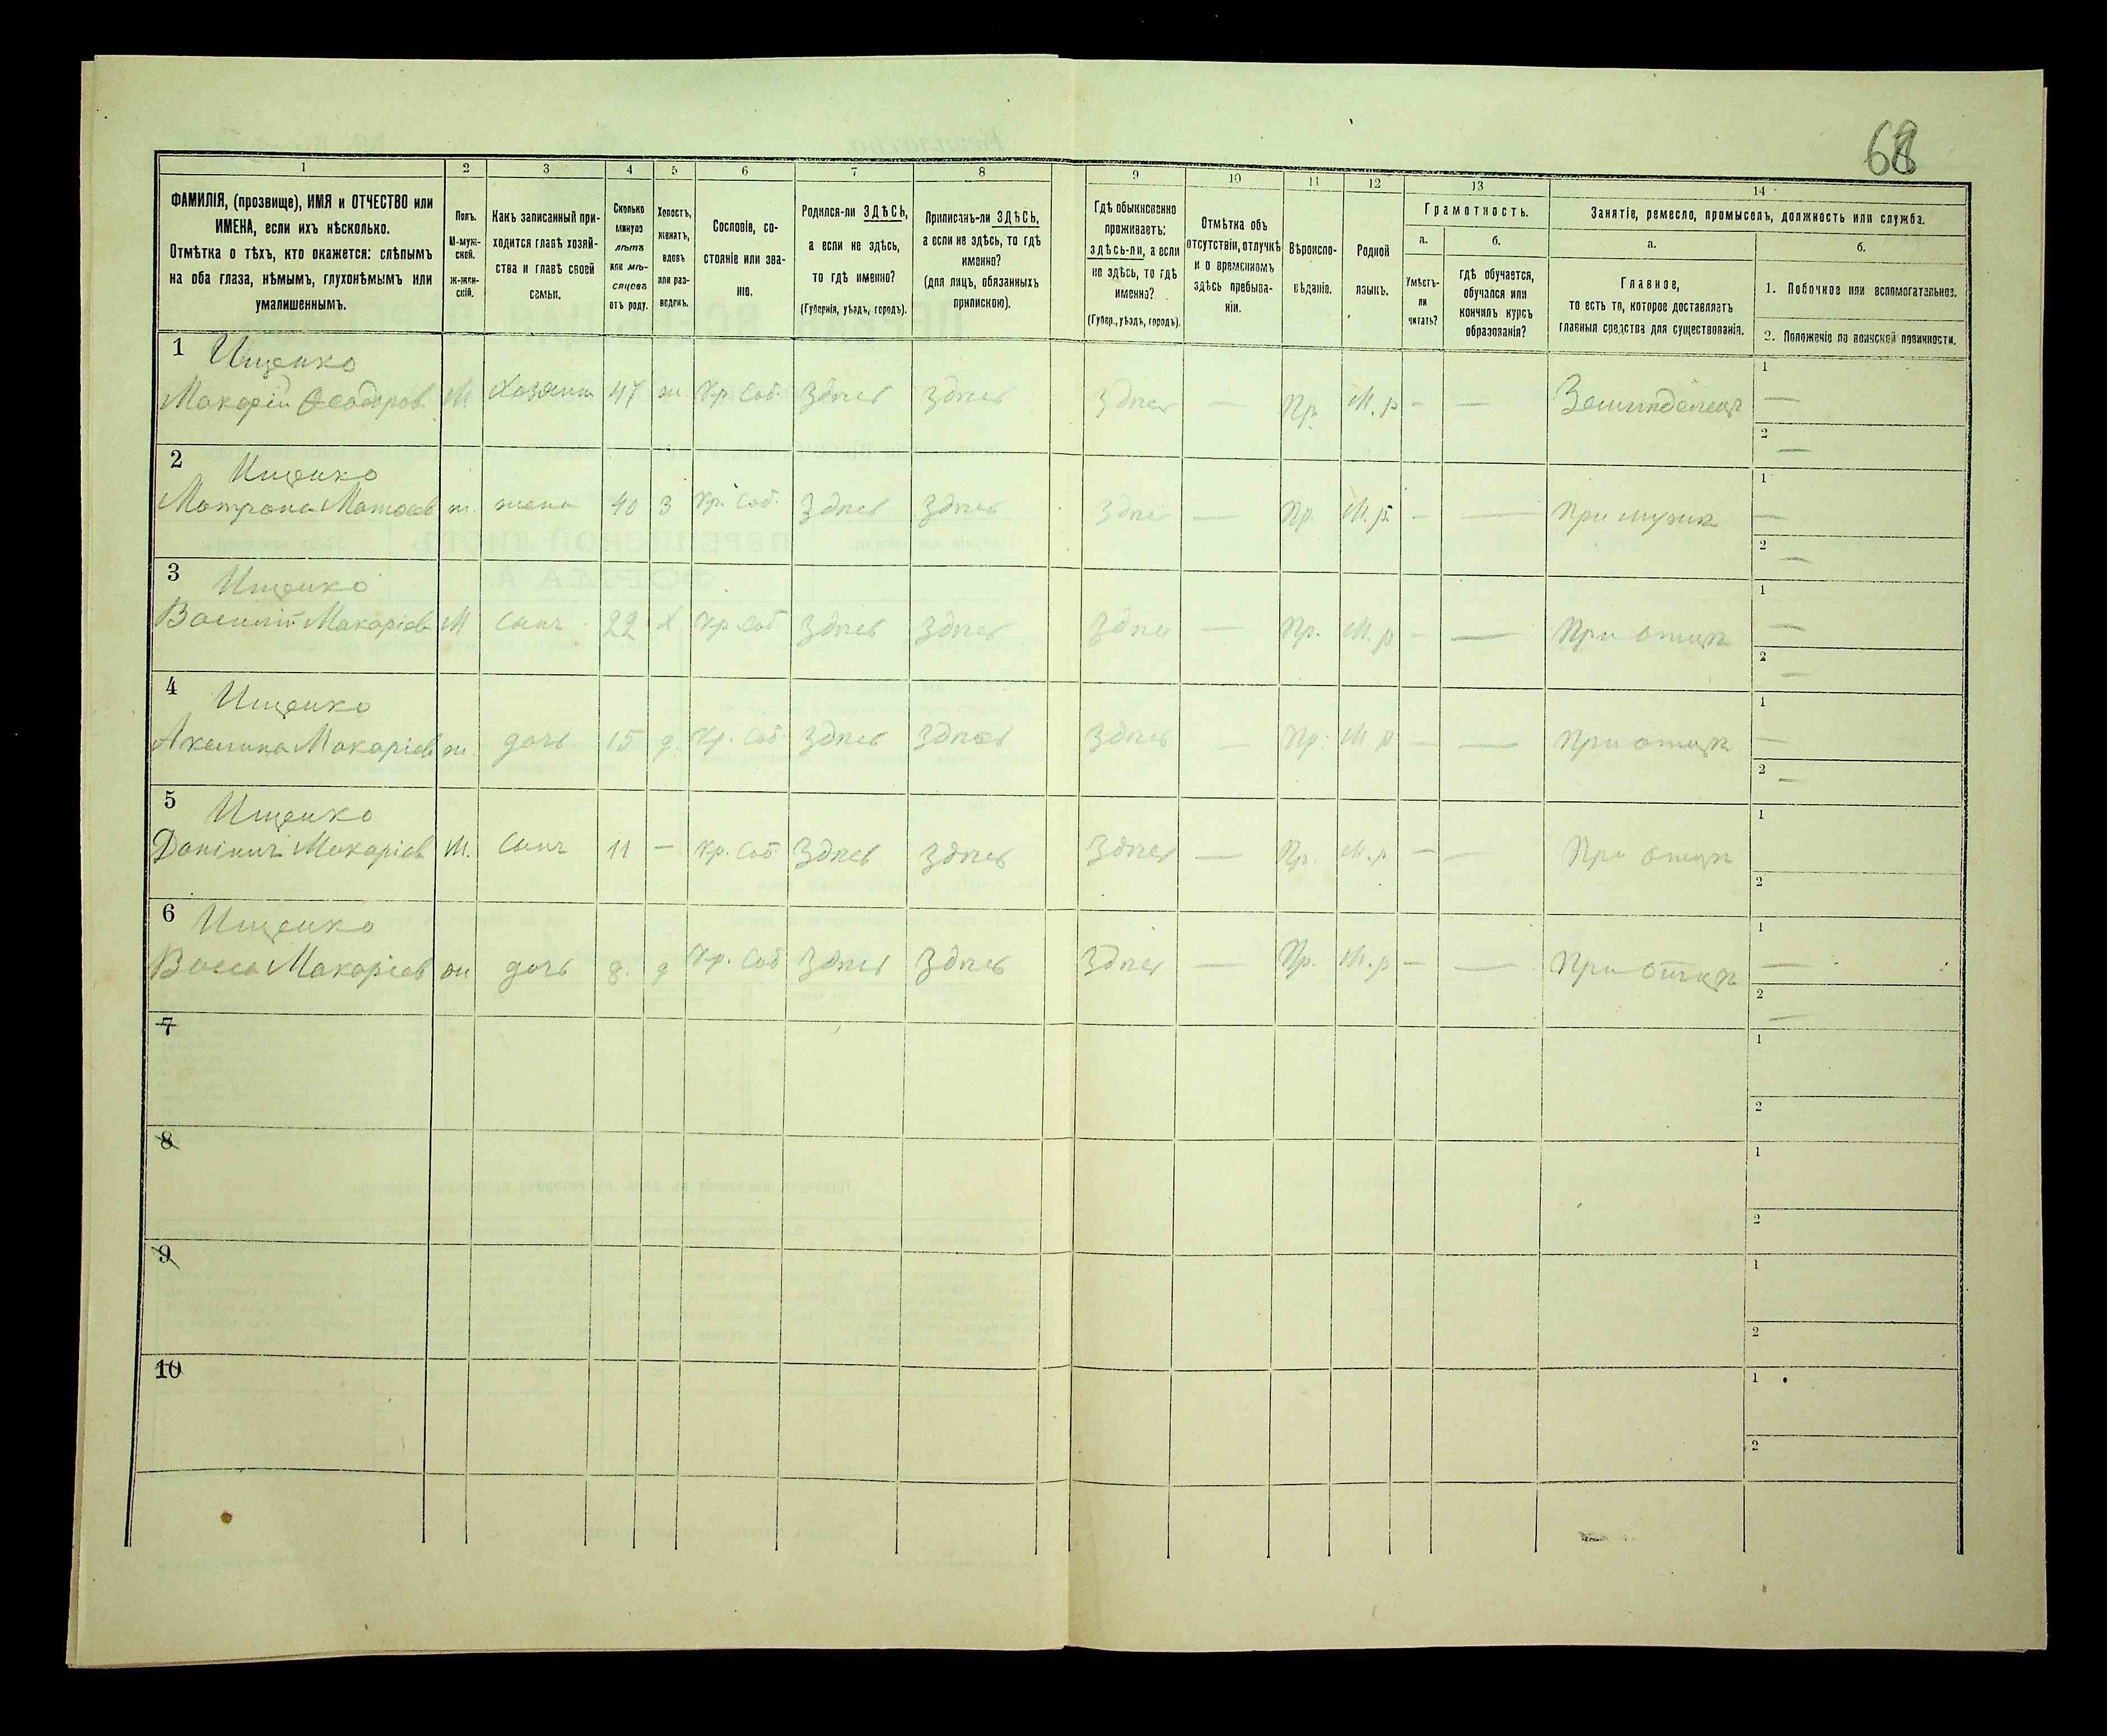 68
1 2 3 4 5 6 7 8 9 10 11 12 13 14
ФАМИЛІЯ, (прозвище), ИМЯ и ОТЧЕСТВО или
ИМЕНА, если ихъ нѣсколько.
Отмѣтка о тѣхъ, кто окажется: слѣпымъ
на оба глаза, нѣмымъ, глухонѣмымъ или
умалишеннымъ.
Полъ.
М-муж-
ской.
ж-жен-
скій.
Какъ записанный при-
ходится главѣ хозяй-
ства и главѣ своей
семьи.
Сколько
минуло
лѣтъ
или мѣ-
сяцевъ
отъ роду.
Холостъ,
женатъ,
вдовъ
или раз-
веденъ.
Сословіе, со-
стояніе или зва-
ніе.
Родился-ли ЗДѢСЬ,
а если не здѣсь,
то гдѣ именно?
(Губернія, уѣздъ, городъ).
Приписанъ-ли ЗДѢСЬ,
а если не здѣсь, то гдѣ
именно?
(для лицъ, обязанныхъ
припискою).
Гдѣ обыкновенно
проживаетъ:
здѣсь-ли, а если
не здѣсь, то гдѣ
именно?
(Губер., уѣздъ, городъ).
Отмѣтка объ
отсутствіи, отлучкѣ
и о временномъ
здѣсь пребыва-
ніи.
Вѣроиспо-
вѣданіе.
Родной
языкъ.
Грамотность.
а.
Умѣетъ-
ли
читать?
б.
гдѣ обучается,
обучался или
кончилъ курсъ
образованія?
Занятіе, ремесло, промыселъ, должность или служба.
а.
Главное,
то есть то, которое доставляетъ
главныя средства для существованія.
б.
1. Побочное или вспомогательное.
2. Положеніе по воинской повинности.
1 Ищенко
Макарій Ѳеодоров. М. Хозяин 47 ж. Кр. Соб. Здѣсь Здѣсь Здѣсь — Пр. М.р — — Земледелец 1 —
2 —
2 Ищенко
Матрона Матѳеев ж. жена 40 З Кр. Соб. Здѣсь Здѣсь Здѣсь — Пр. М.р. — — При мужѣ 1 —
2 —
3 Ищенко
Василій Макаріев М сынъ 22 х Кр. Соб Здѣсь Здѣсь Здѣсь — Пр. М.р — — При отцѣ 1 —
2 —
4 Ищенко
Акилина Макаріев ж. дочь 15 д. Кр. Соб Здѣсь Здѣсь Здѣсь — Пр. М р — — При отцѣ 1 —
2 —
5 Ищенко
Даніилъ Макаріев М. Сынъ 11 — Кр. Соб Здѣсь Здѣсь Здѣсь — Пр. М.р — — При отцѣ 1
2
6 Ищенко
Васса Макаріев ж дочь 8. д Кр. Соб Здѣсь Здѣсь Здѣсь — Пр. М.р — — При отцѣ 1 —
2 —
7 1
2
8 1
2
9 1
2
10 1
2